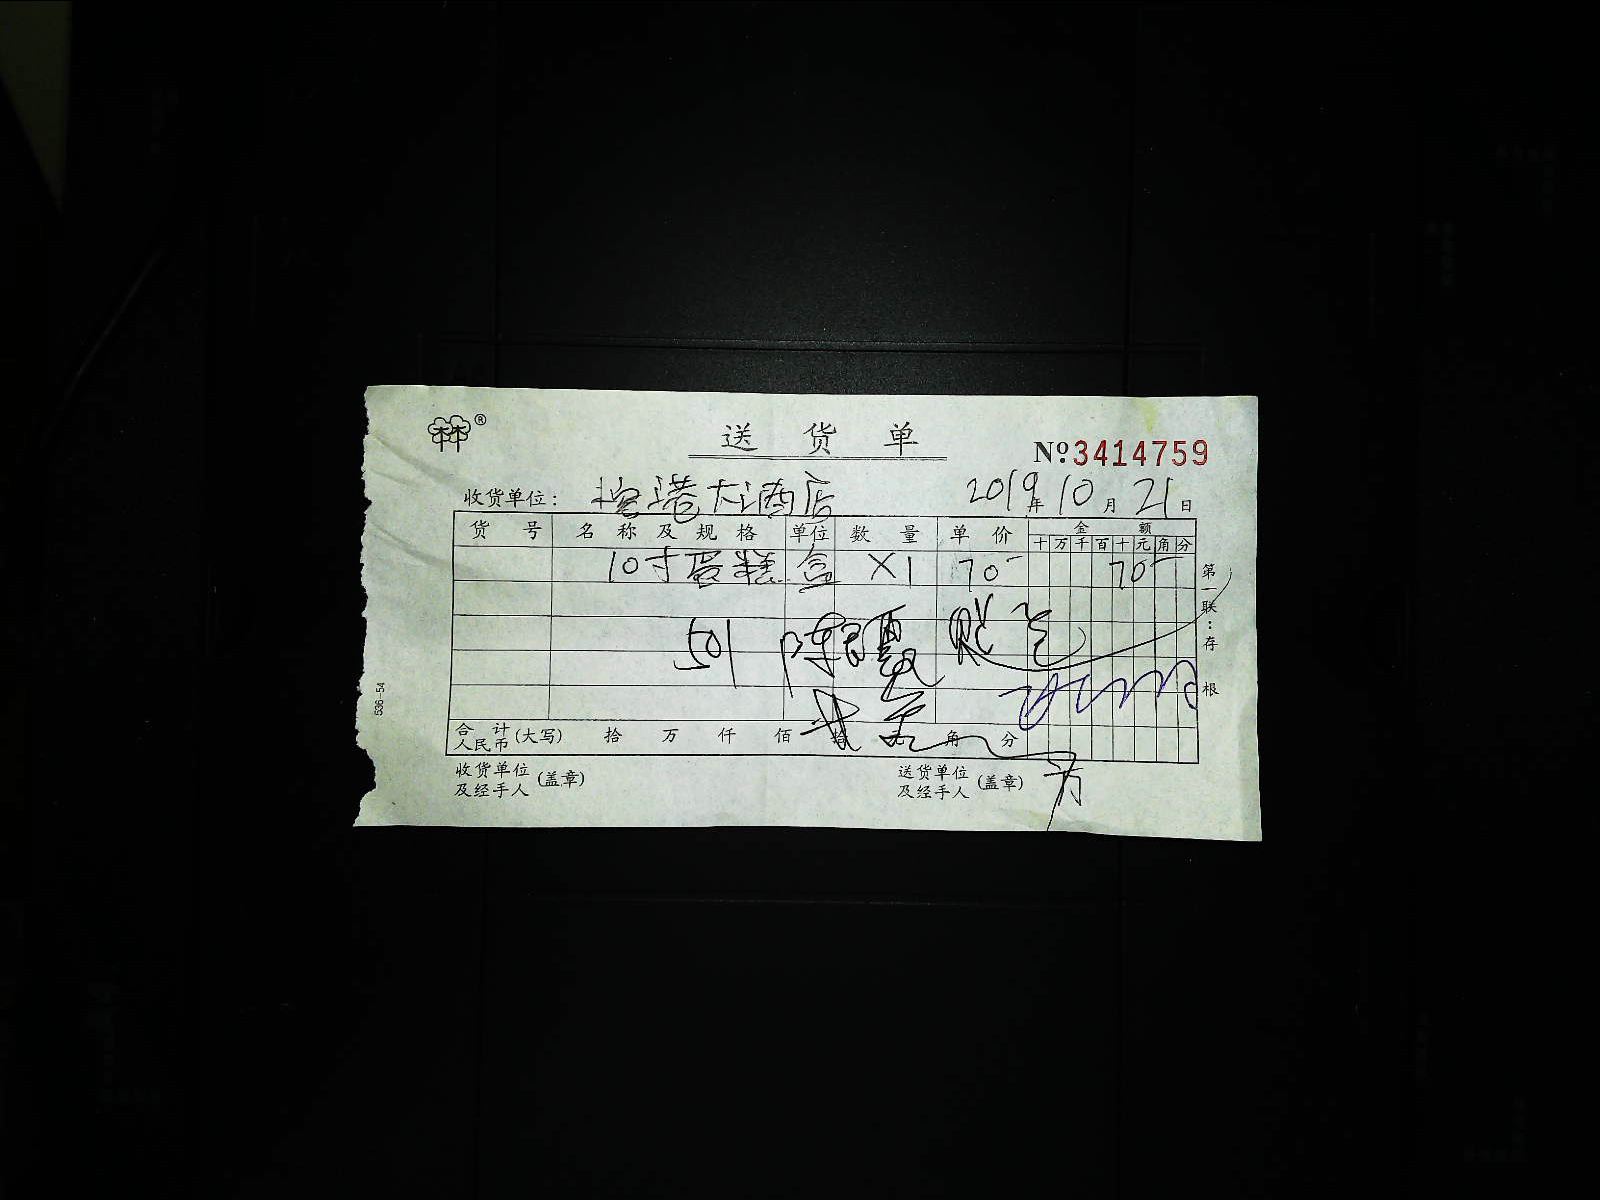 ®
送货单
№3414759
收货单位: 港大酒店 2019年10月21日
货号 名称及规格 单位 数量 单价 金额
十万千百十元角分
10寸蛋糕 盒 X1 70- 70-
501 陈
合计人民币(大写) 拾 万 仟 佰 拾 元 角 分
收货单位及经手人(盖章) 送货单位及经手人(盖章)
第一联:存根
536-54